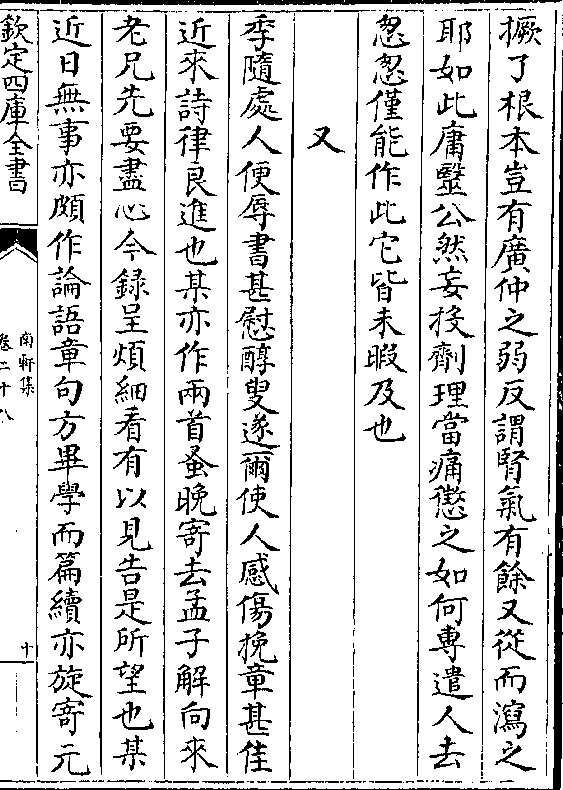 撅了根本豈有廣仲之弱反謂腎氣有餘又從而瀉之
耶如此庸毉公然妄投劑理當痛懲之如何專遣人去
怱怱僅能作此它皆未暇及也
又
季隨處人便辱書甚慰醇叟遂爾使人感傷挽章甚佳
近來詩律良進也某亦作兩首蚤晚寄去孟子解向來
老兄先要盡心今録呈煩細看有以見告是所望也某
近日無事亦頗作論語章句方畢學而篇續亦旋寄元
欽定四庫全書
南軒集
卷二十八
十